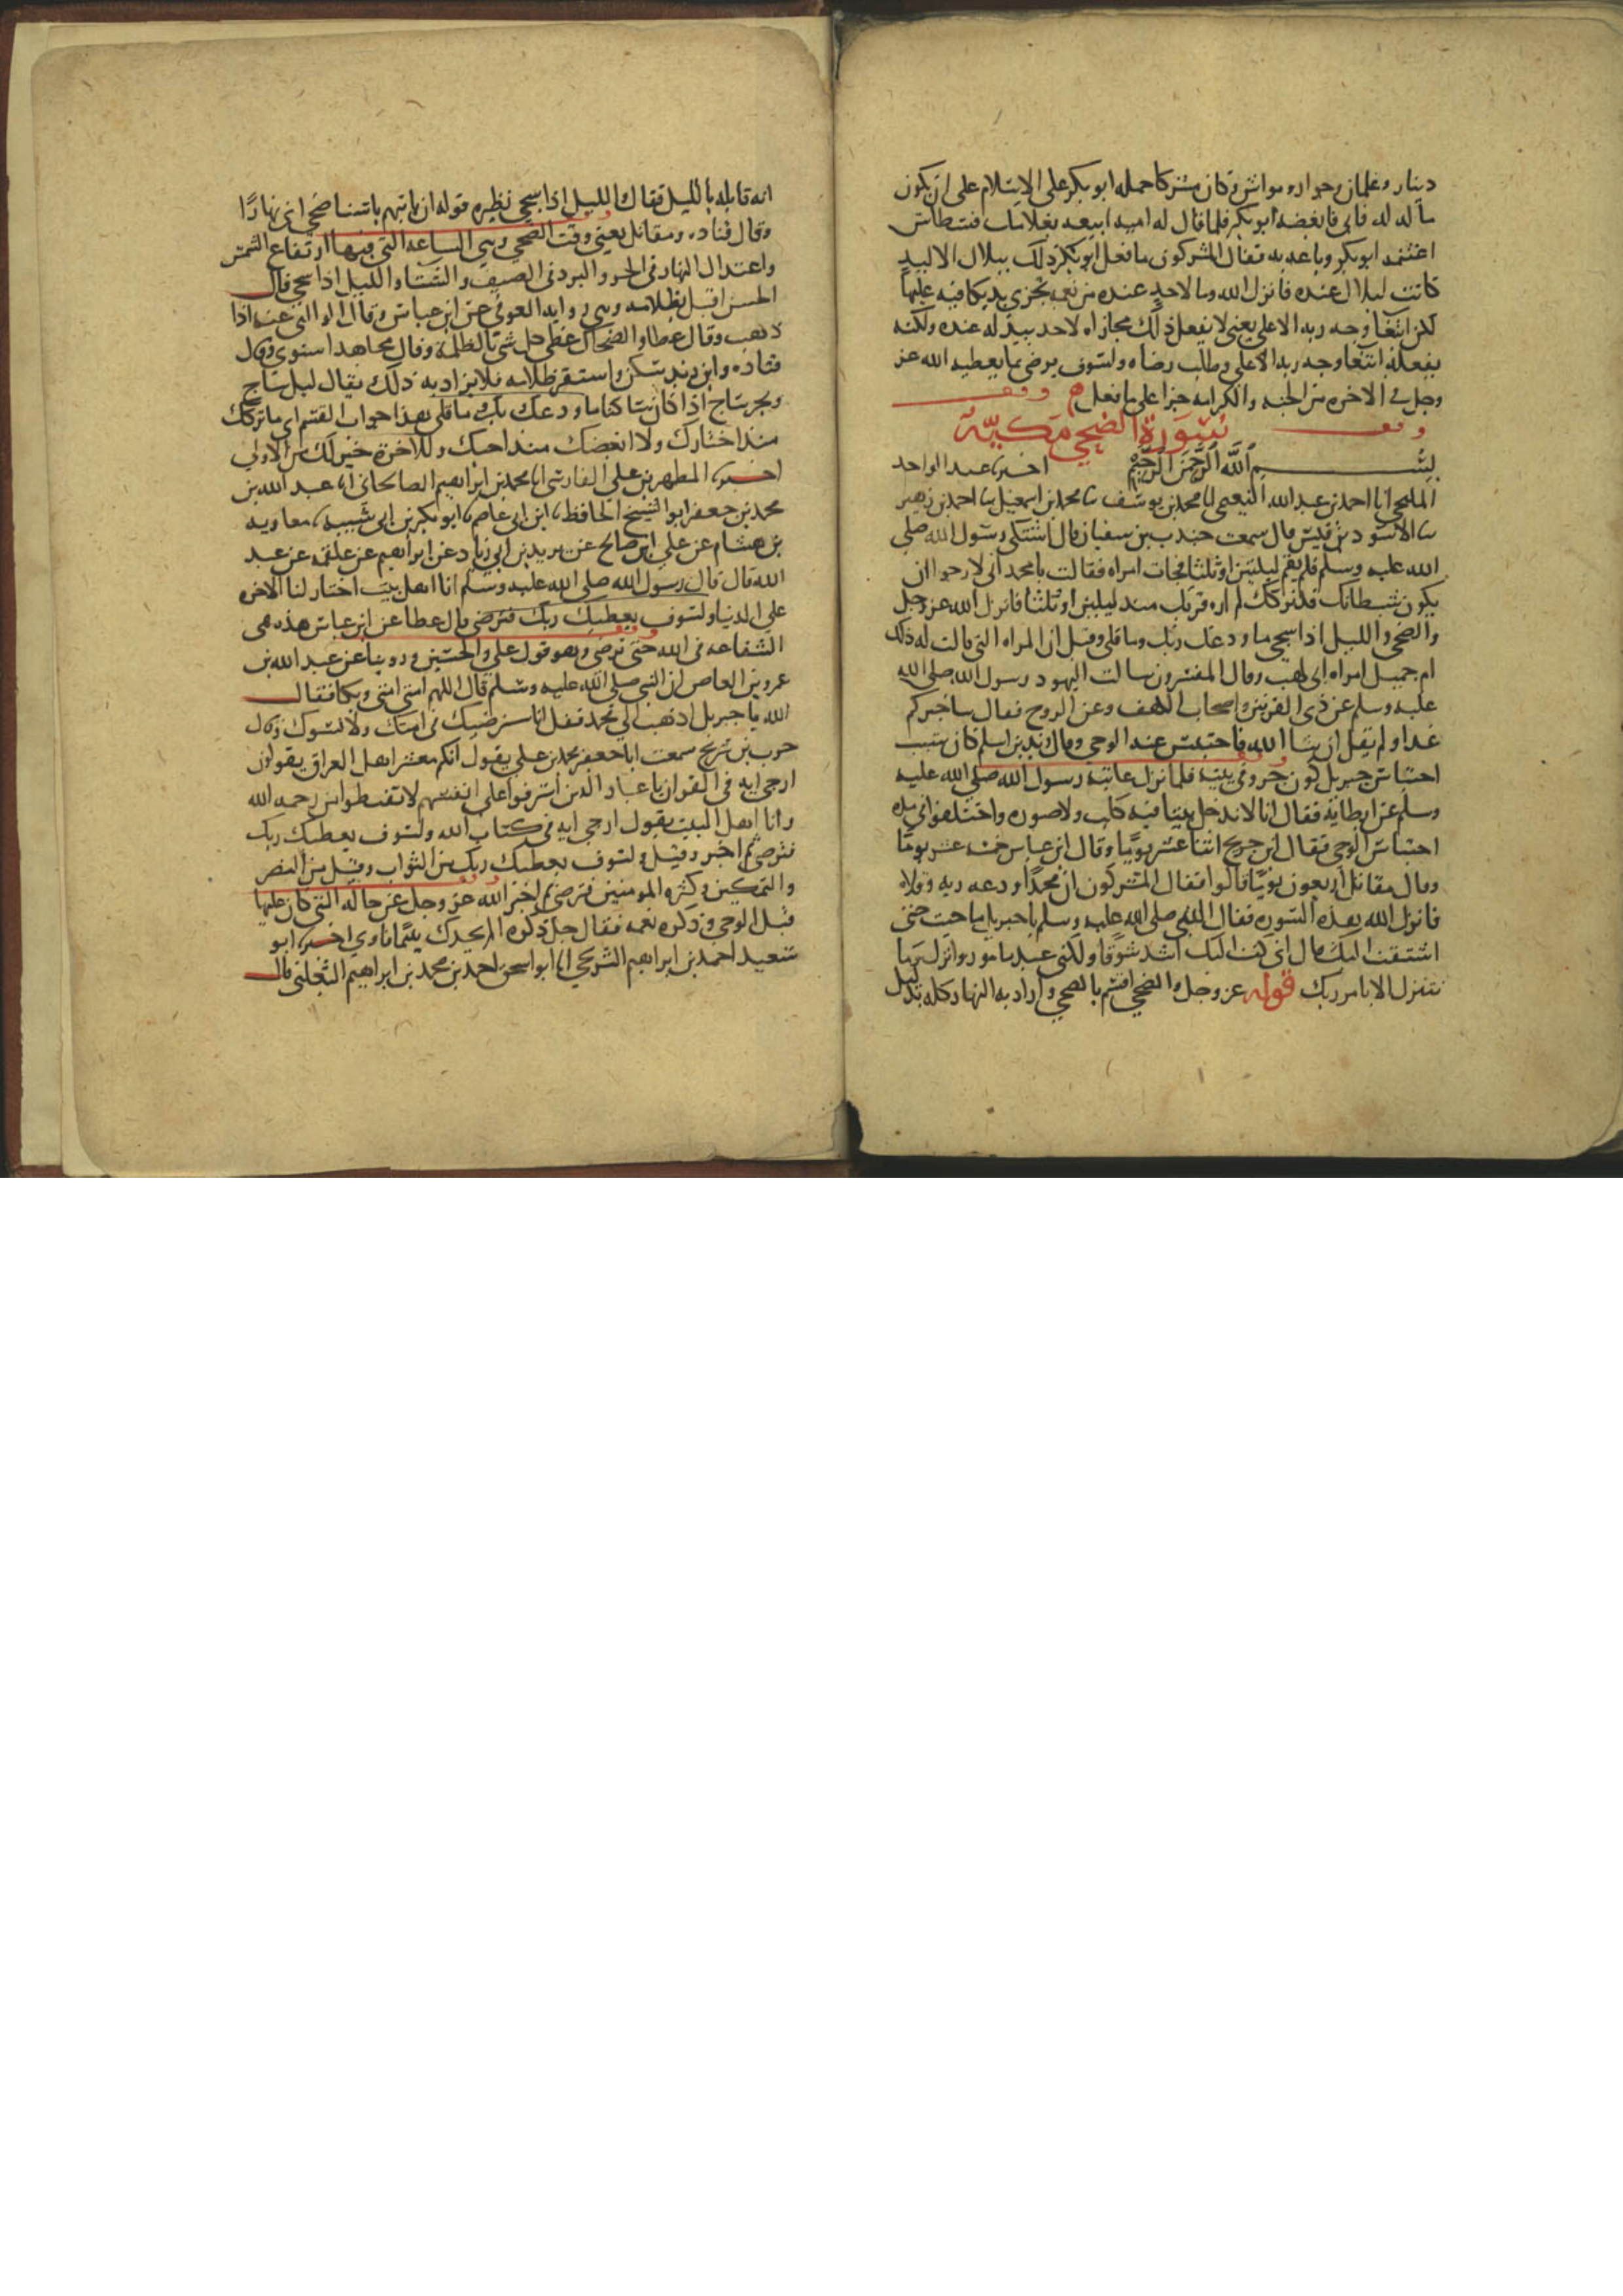 دينار وغلمان وجوار ومواش وكان مشركا حمله ابو بكر على الاسلام على ان يكون
ماله له فابى فابغضه ابو بكر فلما قال له اميه ابيعه بغلامك فسطاس
اغتنمه ابو بكر وباعه به فقال المشركون ما فعل ابو بكر ذلك ببلال الا ليد
كانت لبلال عنده فانزل الله وما لاحد عنده من نعمه تجزى يد يكافيه عليها
لكن ابتغا وجه ربه الاعلى يعني لا يفعل ذلك مجازاه لاحد بيد له عنده ولكنه
يفعله ابتغا وجه ربه الاعلى وطلب رضاه ولسوف يرضى بما يعطيه الله عز
وجل في الاخره من الجنه والكرامه جزا على ما فعل
وقف سورة الضحى مكية وقف
بسم الله الرحمن الرحيم اخبرنا عبد الواحد
المليحي انا احمد بن عبد الله النعيمي انا محمد بن يوسف نا محمد بن اسمعيل نا احمد بن زهير
نا الاسود بن قيس قال سمعت جندب بن سفيان قال اشتكى رسول الله صلى
الله عليه وسلم فلم يقم ليلتين او ثلثا فجات امراه فقالت يا محمد اني لارجوا ان
يكون شيطانك قد تركك لم اره قربك منذ ليلتين او ثلثا فانزل الله عز وجل
والضحى والليل اذا سجى ما ودعك ربك وما قلى وقيل ان المراه التي قالت له ذلك
ام جميل امراه ابي لهب وقال المفسرون سالت اليهود رسول الله صلى الله
عليه وسلم عن ذي القرنين واصحاب الكهف وعن الروح فقال ساخبركم
غدا ولم يقل ان شا الله فاحتبس عنه الوحي وقال زيد بن اسلم كان سبب
احتباس جبريل كون جرو في بيته فلما نزل عاتبه رسول الله صلى الله عليه
وسلم عن ابطايه فقال انا لا ندخل بيتا فيه كلب ولا صوره واختلفوا في مده
احتباس الوحي فقال ابن جريج اثنا عشر يوما وقال ابن عباس خمسه عشر يوما
وقال مقاتل اربعون يوما قالوا فقال المشركون ان محمدا ودعه ربه وقلاه
فانزل الله هذه السوره فقال النبي صلى الله عليه وسلم يا جبريل ما جيت حتى
اشتقت اليك قال اني كنت اليك اشد شوقا ولكني عبد مامور وانزل وما
نتنزل الا بامر ربك قوله عز وجل والضحى اقسم بالضحى واراد به النهار كله بدليل
انه قابله بالليل فقال والليل اذا سجى نظيره قوله ان ياتيهم باسنا ضحى اي نهارا
وقال قتاده ومقاتل يعني وقت الضحى وهي الساعه التي فيها ارتفاع الشمس
واعتدال النهار في الحر والبرد في الصيف والشتا والليل اذا سجى قال
الحسن اقبل بظلامه وهي روايه العوفي عن ابن عباس وقال الوالبي عنه اذا
ذهب وقال عطا والضحاك غطى كل شي بالظلمه وقال مجاهد استوى وقال
قتاده وابن زيد سكن واستقر ظلامه فلا يزاد بعد ذلك يقال ليل ساج
وبحر ساج اذا كان ساكنا ما ودعك ربك وما قلى هذا جواب القسم اي ما تركك
منذ اختارك ولا ابغضك منذ احبك وللاخرة خير لك من الاولى
اخبرنا المطهر بن علي الفارسي انا محمد بن ابراهيم الصالحاني انا عبد الله بن
محمد بن جعفر ابو الشيخ الحافظ نا ابن ابي عاصم نا ابو بكر بن ابي شيبه نا معاويه
بن هشام عن علي ابن صالح عن يزيد بن ابي زياد عن ابراهيم عن علقمه عن عبد
الله قال قال رسول الله صلى الله عليه وسلم انا اهل بيت اختار لنا الاخره
على الدنيا ولسوف يعطيك ربك فترضى قال عطا عن ابن عباس هذه هي
الشفاعه في الله حتى ترضى وهو قول علي والحسين وروينا عن عبد الله بن
عمرو بن العاص ان النبي صلى الله عليه وسلم قال اللهم امتي امتي وبكا فقال
الله يا جبريل اذهب الى محمد فقل انا سنرضيك في امتك ولا نسوك وقال
حرب بن شريح سمعت ابا جعفر محمد بن علي يقول انكم معشر اهل العراق يقولون
ارجى ايه في القران يا عباد الذين اسرفوا على انفسهم لا تقنطوا من رحمه الله
وانا اهل البيت يقول ارجى ايه في كتاب الله ولسوف يعطيك ربك
فترضى ثم اخبر وقيل ولسوف يعطيك ربك من الثواب وقيل من النصر
والتمكين وكثره المومنين فترضى ثم اخبر الله عز وجل عن حاله التي كان عليها
قبل الوحي وذكره نعمه فقال جل ذكره الم يجدك يتيما فاوى اخبرنا ابو
سعيد احمد بن ابراهيم الشريحي انا ابو اسحق احمد بن محمد بن ابراهيم الثعلبي قال